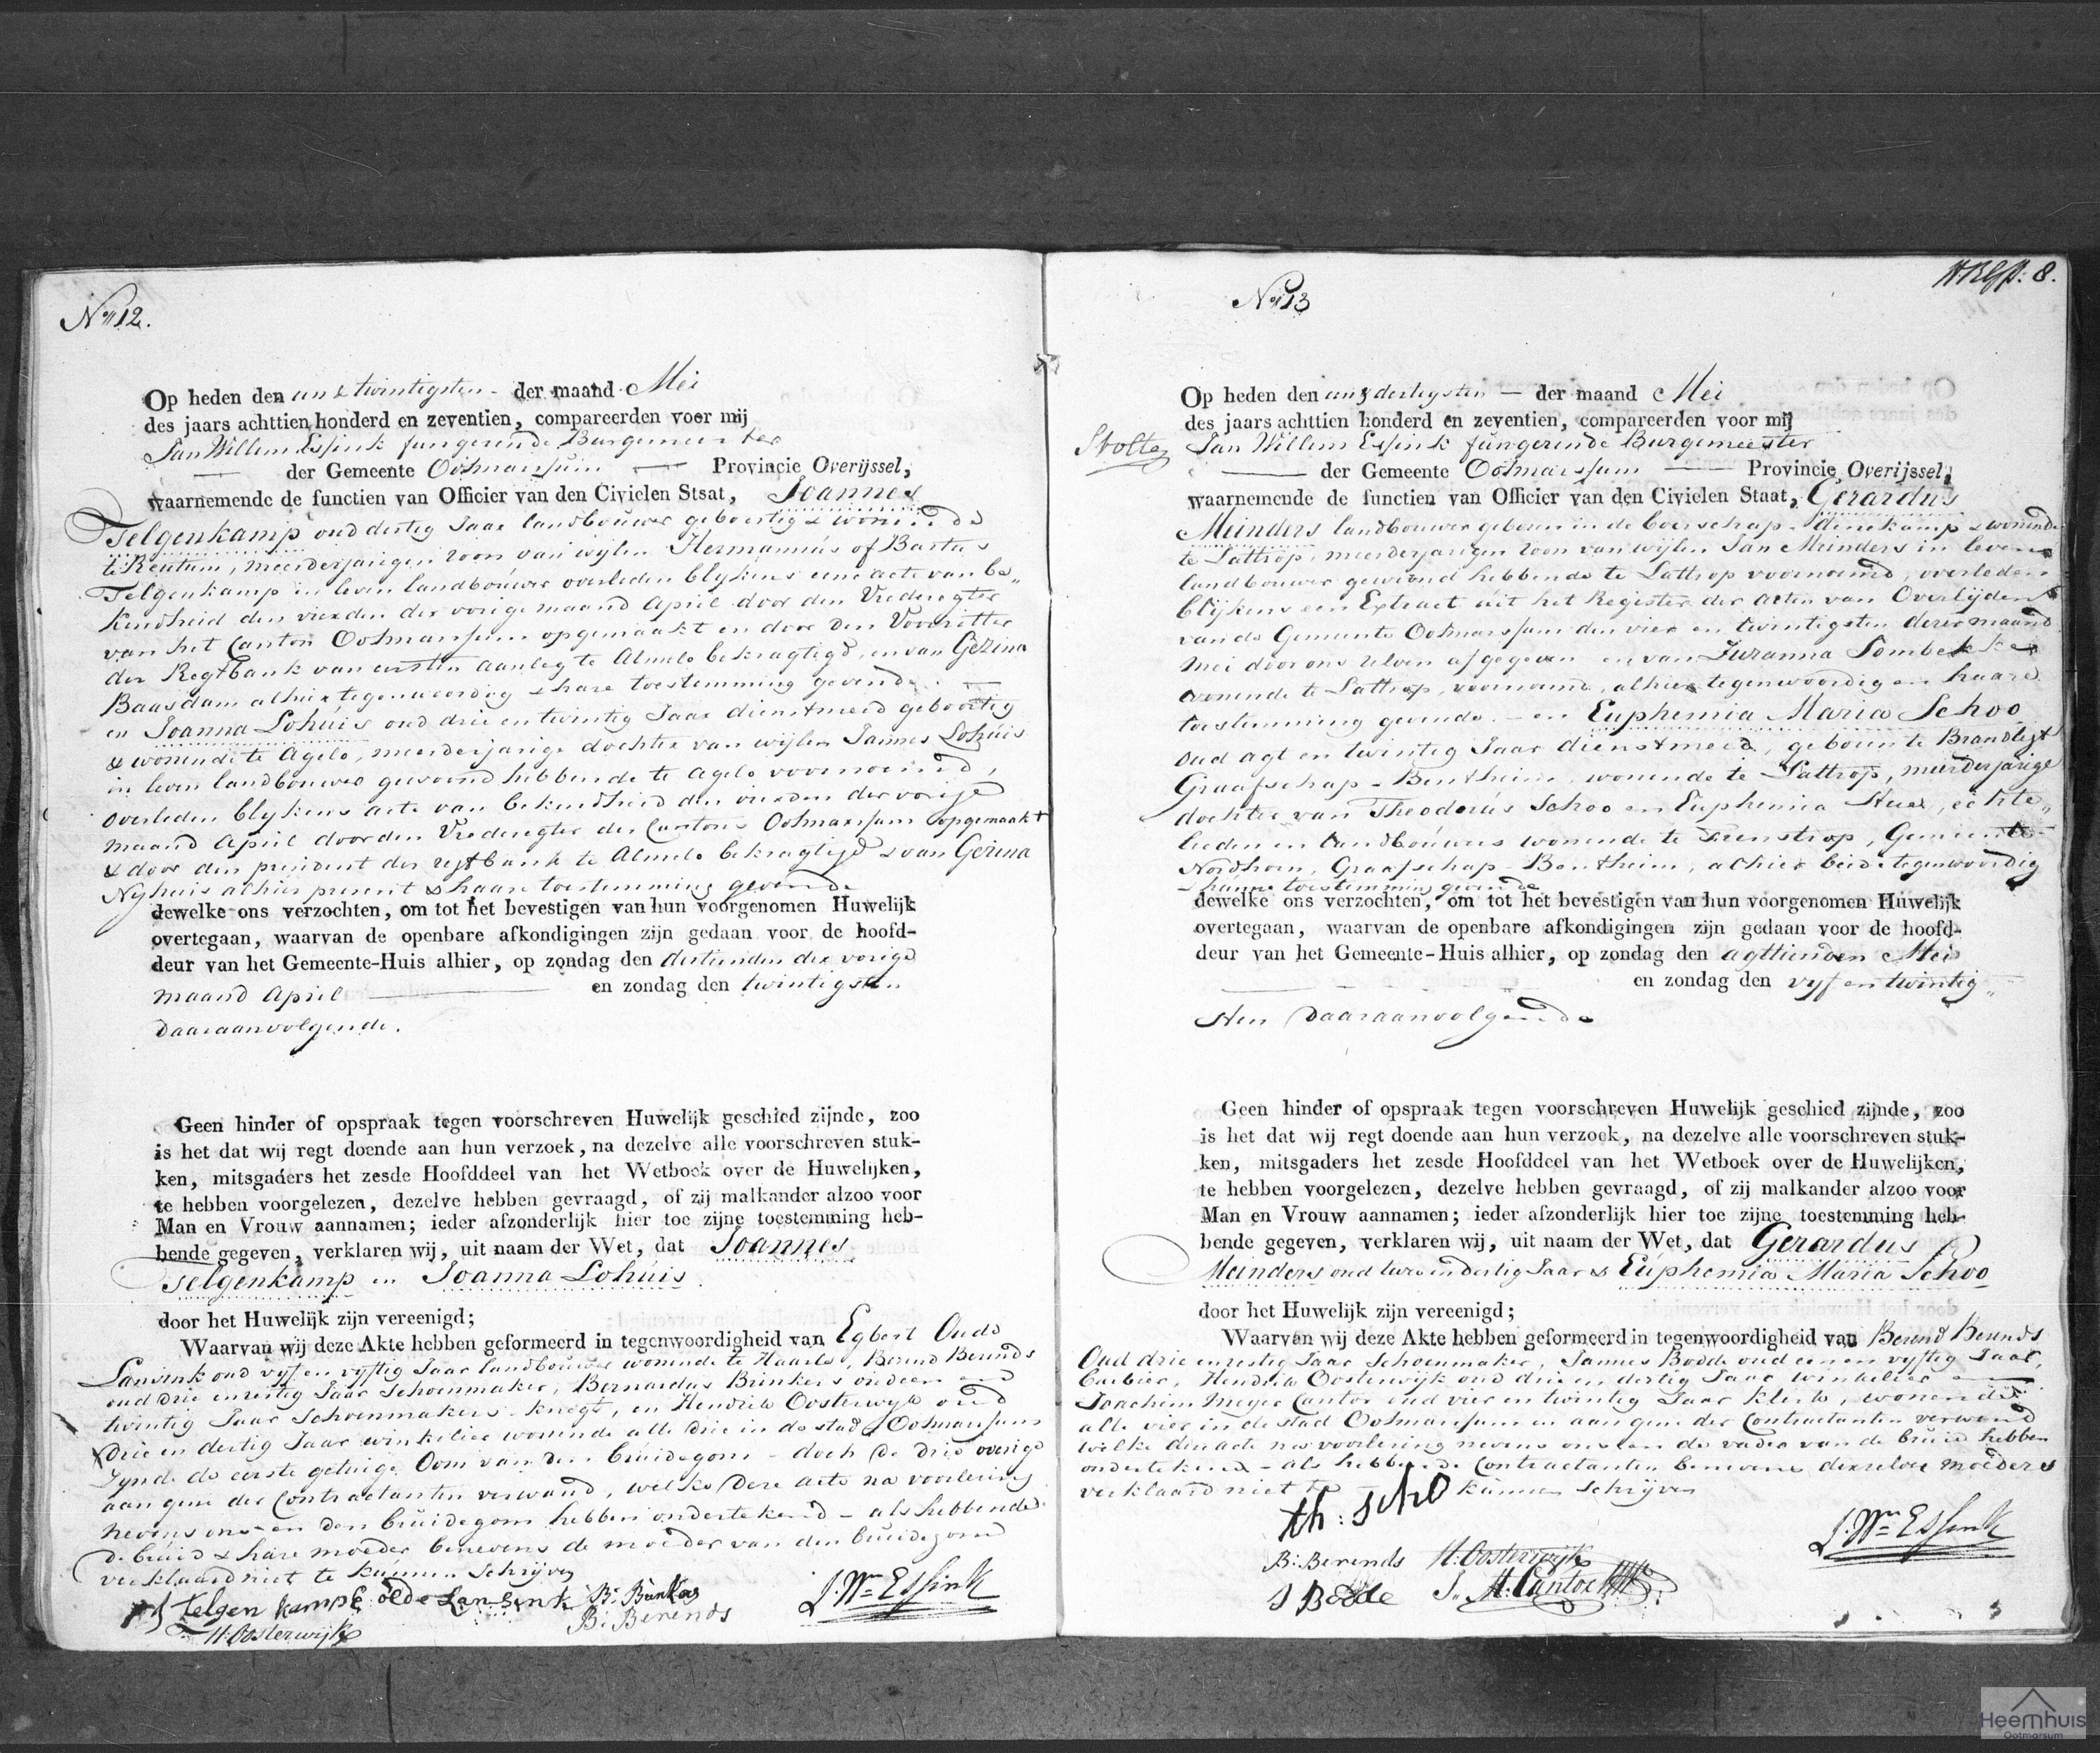 No 12.
Op heden den een & twintigsten - der maand Mei
des jaars achttien honderd en zeventien, compareerden voor mij
Jan Willem Essink fungerende Burgemeester
der Gemeente Ootmarssum Provincie Overijssel,
waarnemende de functien van Officier van den Civielen Stsat, Joannes
Telgenkamp oud dertig Jaar landbouwer geboortig & wonende
te Reutum, meerderjarigen zoon van wijlen Hermannus of Bartus
Telgenkamp in leven landbouwer overleden blijkens eene acte van be„
kendheid den vierden der vorige maand April door den Vrederegter
van het Canton Ootmarssum opgemaakt en door den Voorzitter
der Regtbank van eersten aanleg te Almelo bekragtigd, en van Gezina
Baasdam alhier tegenwoordig & hare toestemming gevende. —
en Joanna Lohuis oud drie en twintig Jaar dienstmeid geboortig
& wonende te Agelo, meerderjarige dochter van wijlen Jannes Lohuis
in leven landbouwer gewoond hebbende te Agelo voornoemd,
overleden blijkens acte van bekendheid den vierden der vorige
maand April door den Vrederegter des Cantons Ootmarssum opgemaakt
& door den president der regtbank te Almelo bekragtigd & van Gezina
Nijhuis alhier present & haare toestemming gevende
dewelke ons verzochten, om tot het bevestigen van hun voorgenomen Huwelijk
overtegaan, waarvan de openbare afkondigingen zijn gedaan voor de hoofd-
deur van het Gemeente-Huis alhier, op zondag den dertienden der vorige
maand April en zondag den twintigsten
daaraanvolgende.
Geen hinder of opspraak tegen voorschreven Huwelijk geschied zijnde, zoo
is het dat wij regt doende aan hun verzoek, na dezelve alle voorschreven stuk-
ken, mitsgaders het zesde Hoofddeel van het Wetboek over de Huwelijken,
te hebben voorgelezen, dezelve hebben gevraagd, of zij malkander alzoo voor
Man en Vrouw aannamen; ieder afzonderlijk hier toe zijne toestemming heb-
bende gegeven, verklaren wij, uit naam der Wet, dat Joannes
Telgenkamp en Joanna Lohuis
door het Huwelijk zijn vereenigd;
Waarvan wij deze Akte hebben geformeerd in tegenwoordigheid van Egbert Oude
Lansink oud vyf en vyftig Jaar landbouwer wonende te Haarle, Berend Berends
oud drie en zestig Jaar Schoenmaker, Bernardus Brinkers oud een en
twintig Jaar Schoenmakers-knegt, en Hendrik Oosterwijk oud
drie en dertig Jaar winkelier wonende alle drie in de stad Ootmarssum
zynde de eerste getuige Oom van den bruidegom - doch de drie overige
aan gene der Contractanten verwand, welke deze acte na voorlezing
nevens ons en den bruidegom hebben ondertekend - als hebbende
de bruid & hare moeder benevens de moeder van den bruidegom
verklaard niet te kunnen Schrijven
Telgenkamp E olde Lansink B: Brinkers
H: Oosterwijk B: Berends J: Wm Essink
No 13
8.
Stolte
Op heden den een & dertigsten — der maand Mei
des jaars achttien honderd en zeventien, compareerden voor mij
Jan Willem Essink fungerende Burgemeester
der Gemeente Ootmarssum Provincie Overijssel,
waarnemende de functien van Officier van den Civielen Staat, Gerardus
Meinders landbouwer geboren in de boerschap denekamp & wonende
te Lattrop, meerderjarigen zoon van wijlen Jan Meinders in leven
landbouwer gewoond hebbende te Lattrop voornoemd, overleden
blijkens een Extract uit het Register der Acten van Overlijden
van de Gemeente Ootmarssum den vier en twintigsten dezer maand
Mei door ons zelven afgegeven en van Zuzanna Sombekke
wonende te Lattrop, voornoemd, alhier tegenwoordig en haare
toestemming gevende. - en Euphemia Maria Schoo
oud agt en twintig Jaar dienstmeid, geboren te Brandlegt
Graafschap-Bentheim, wonende te Lattrop, meerderjarige
dochter van Theodorus Schoo en Euphemia Stuer, echte„
lieden en landbouwers wonende te Frenstrop, Gemeente
Nordhorn, Graafschap-Bentheim, alhier beide tegenwoordig
& hunne toestemming gevende
dewelke ons verzochten, om tot het bevestigen van hun voorgenomen Huwelijk
overtegaan, waarvan de openbare afkondigingen zijn gedaan voor de hoofd-
deur van het Gemeente-Huis alhier, op zondag den agttienden Mei
en zondag den vyf en twintig„
sten daaraanvolgende
Geen hinder of opspraak tegen voorschreven Huwelijk geschied zijnde, zoo
is het dat wij regt doende aan hun verzoek, na dezelve alle voorschreven stuk-
ken, mitsgaders het zesde Hoofddeel van het Wetboek over de Huwelijken,
te hebben voorgelezen, dezelve hebben gevraagd, of zij malkander alzoo voor
Man en Vrouw aannamen; ieder afzonderlijk hier toe zijne toestemming heb-
bende gegeven, verklaren wij, uit naam der Wet, dat Gerardus
Meinders oud twee en dertig Jaar & Euphemia Maria Schoo
door het Huwelijk zijn vereenigd;
Waarvan wij deze Akte hebben geformeerd in tegenwoordigheid van Berend Berends
Oud drie en zestig Jaar Schoenmaker, Jannes Bodde oud een en vyftig Jaar,
barbier, Hendrik Oosterwijk oud drie en dertig Jaar winkelier en
Joachim Meyer Cantor oud vier en twintig Jaar klerk, wonende
alle vier in de stad Ootmarssum en aan gene der Contractanten verwand
welke deze acte na voorlezing nevens ons en de vader van de bruid hebben
ondertekend - als hebbende Contractanten benevens derzelver moeders
verklaard niet te kunnen Schrijven
th: scho
B: Berends H: Oosterwijk J: Wm Essink
J Bodde J. M: Cantor
Heemhuis
Ootmarsum